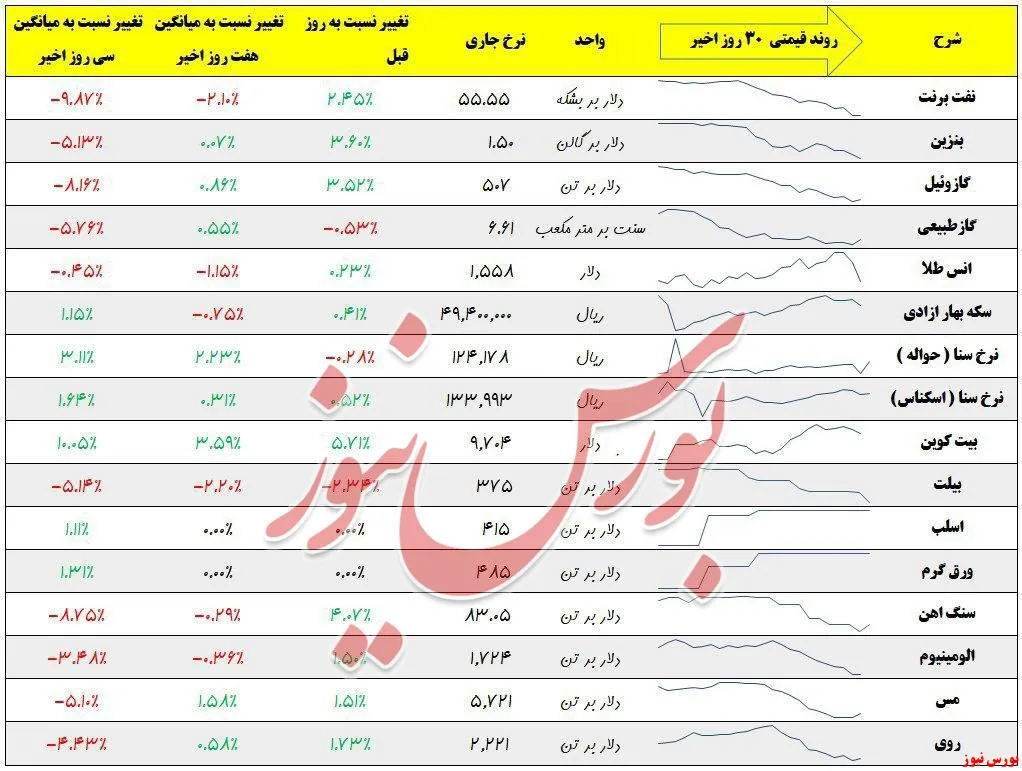 شرح روند قیمتی ۳۰ روز اخیر واحد نرخ جاری تغییر نسبت به روز قبل تغییر نسبت به میانگین هفت روز اخیر تغییر نسبت به میانگین سی روز اخیر
نفت برنت دلار بر بشکه ۵۵.۵۵ ۲.۴۵٪ -۲.۱۰٪ -۹.۸۷٪
بنزین دلار بر گالن ۱.۵۰ ۳.۶۰٪ ۰.۰۷٪ -۵.۱۳٪
گازوئیل دلار بر تن ۵۰۷ ۳.۵۲٪ ۰.۸۶٪ -۸.۱۶٪
گازطبیعی سنت بر متر مکعب ۶.۶۱ -۰.۵۳٪ ۰.۵۵٪ -۵.۷۶٪
انس طلا دلار ۱,۵۵۸ ۰.۲۳٪ -۱.۱۵٪ -۰.۴۵٪
سکه بهار ازادی ریال ۴۹,۴۰۰,۰۰۰ ۰.۴۱٪ -۰.۷۵٪ ۱.۱۵٪
نرخ سنا ( حواله ) ریال ۱۲۴,۱۷۸ -۰.۲۸٪ ۲.۲۳٪ ۳.۱۱٪
نرخ سنا ( اسکناس) ریال ۱۳۳,۹۹۳ ۰.۵۲٪ ۰.۳۱٪ ۱.۶۴٪
بیت کوین دلار ۹,۷۰۴ ۵.۷۱٪ ۳.۵۹٪ ۱۰.۰۵٪
بیلت دلار بر تن ۳۷۵ -۲.۳۴٪ -۲.۲۰٪ -۵.۱۴٪
اسلب دلار بر تن ۴۱۵ ۰.۰۰٪ ۰.۰۰٪ ۱.۱۱٪
ورق گرم دلار بر تن ۴۸۵ ۰.۰۰٪ ۰.۰۰٪ ۱.۳۱٪
سنگ اهن دلار بر تن ۸۳.۰۵ ۴.۰۷٪ -۰.۲۹٪ -۸.۷۵٪
الومینیوم دلار بر تن ۱,۷۲۴ ۱.۵۰٪ -۰.۳۶٪ -۳.۴۸٪
مس دلار بر تن ۵,۷۲۱ ۱.۵۱٪ ۱.۵۸٪ -۵.۱۰٪
روی دلار بر تن ۲,۲۲۱ ۱.۷۳٪ ۰.۵۸٪ -۴.۴۳٪
بورس نیوز
بورس نیوز